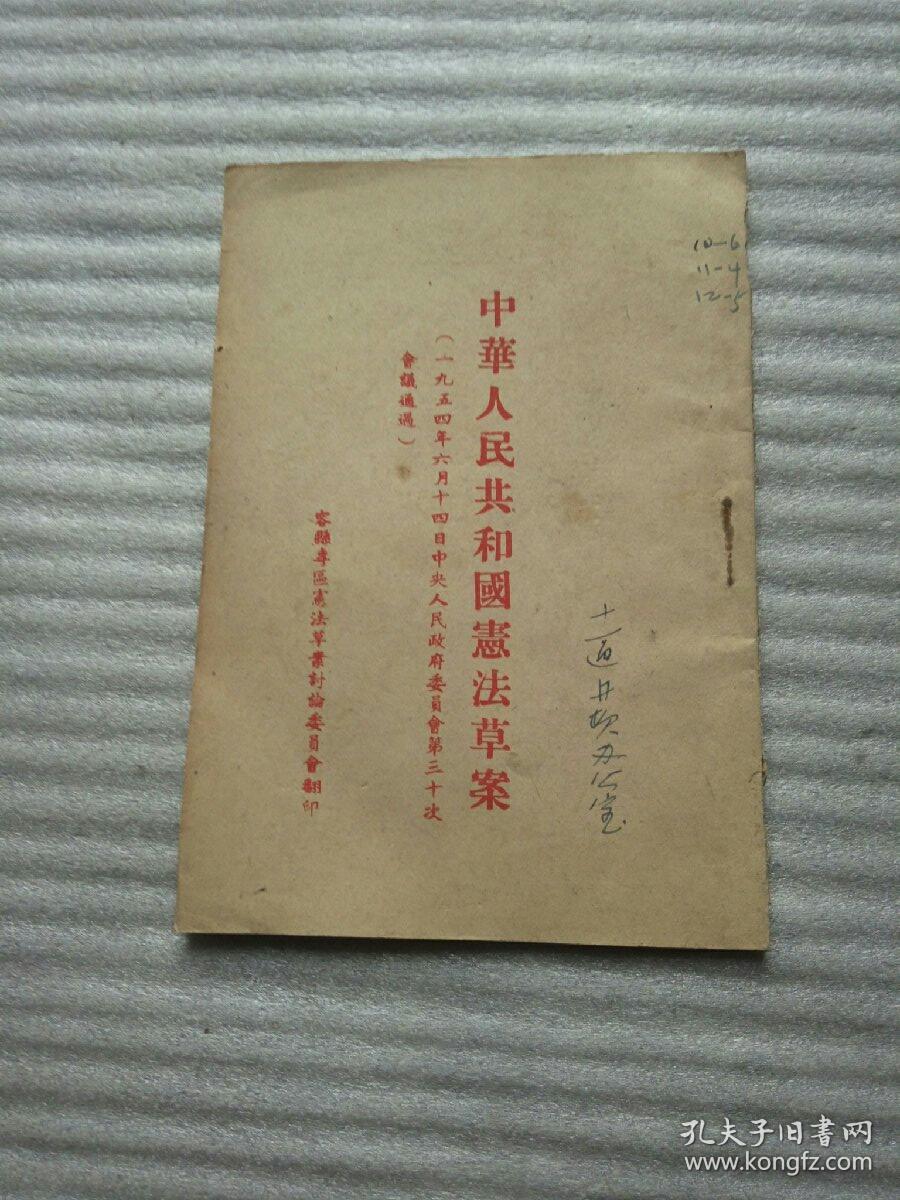 中華人民共和國憲法草案
（一九五四年六月十四日中央人民政府委員會第三十次
會議通過）
容縣專區憲法草案討論委員會翻印
10-6
11-4
12-5
办公室
孔夫子旧书网
www.kongfz.com